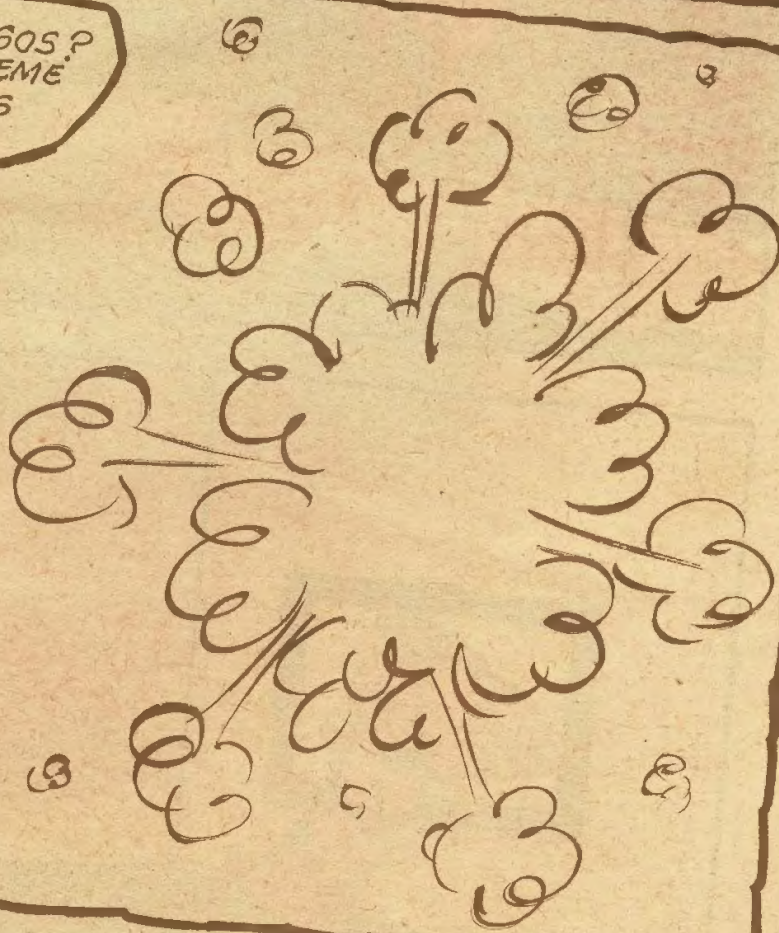 GOS?
EME
S